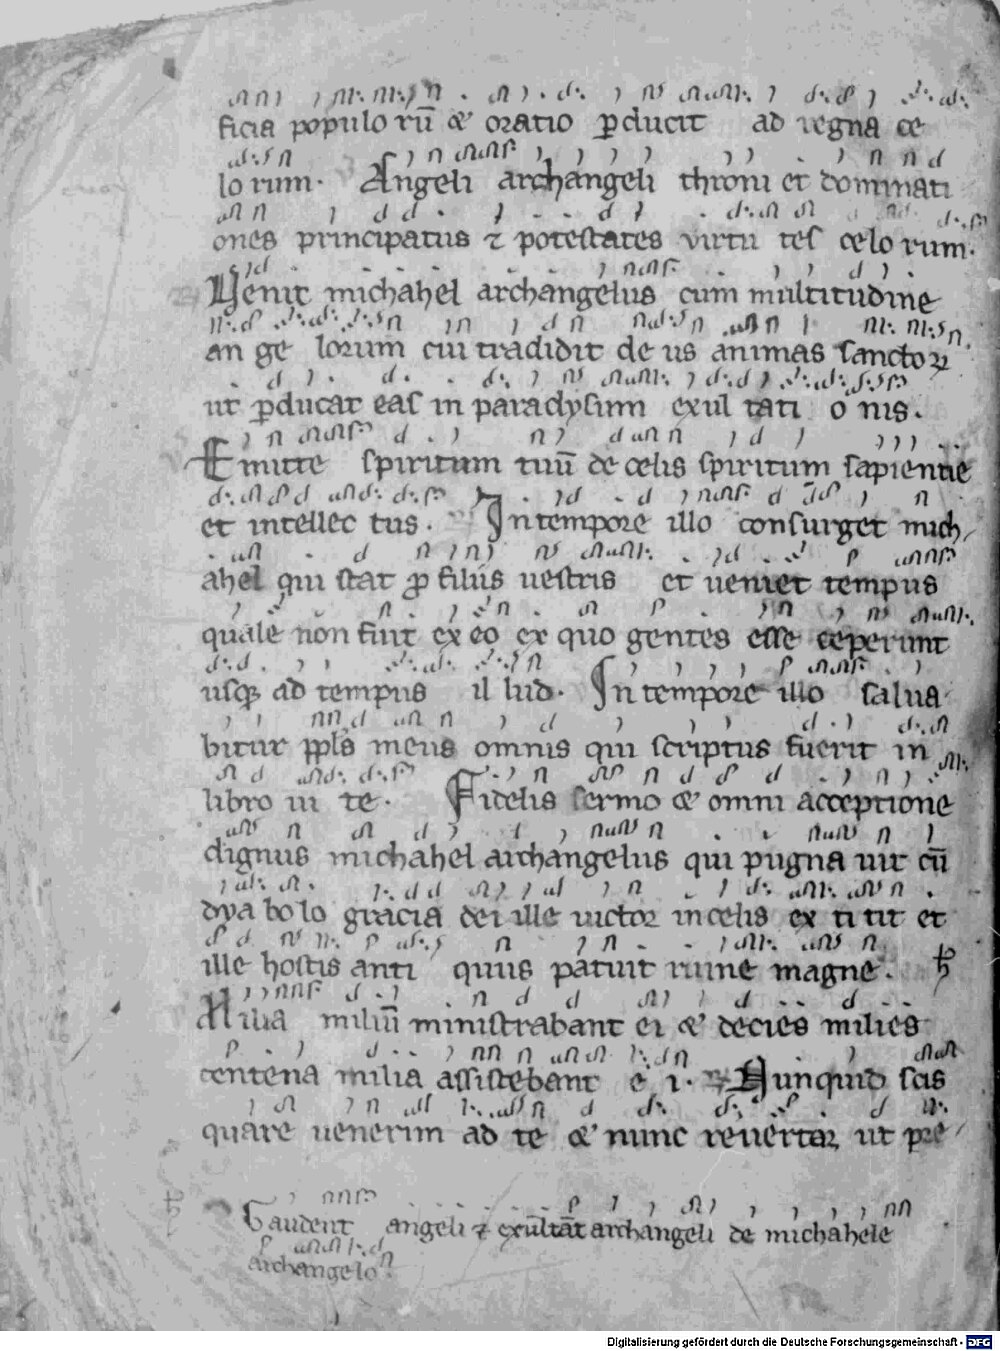 ficia populo rū & oratio ꝑducit ad regna ce
lo rum. Angeli archangeli throni et dominati
ones principatus ⁊ potestates virtu tes celo rum.
Uenit michahel archangelus cum multitudine
an ge lorum cui tradidit de us animas sanctoꝝ
ut ꝑducat eas in paradysum exul tati o nis.
Emitte spiritum tuū de celis spiritum sapientie
et intellec tus. In tempore illo consurget mich
ahel qui stat ꝓ filiis uestris et ueniet tempus
quale non fuit ex eo ex quo gentes esse ceperunt
usqꝫ ad tempus il lud. In tempore illo salua
bitur ppls meus omnis qui scriptus fuerit in
libro ui te. Fidelis sermo & omni acceptione
dignus michahel archangelus qui pugna uit cū
dya bo lo gracia dei ille uictor in celis ex ti tit et
ille hostis anti quus patuit ruine magne.
Milia miliū ministrabant ei & decies milies
centena milia assistebant e i. Nunquid scis
quare uenerim ad te & nunc reuertar ut pre
Gaudent angeli ⁊ exultāt archangeli de michahele
archangelo
Digitalisierung gefördert durch die Deutsche Forschungsgemeinschaft - DFG